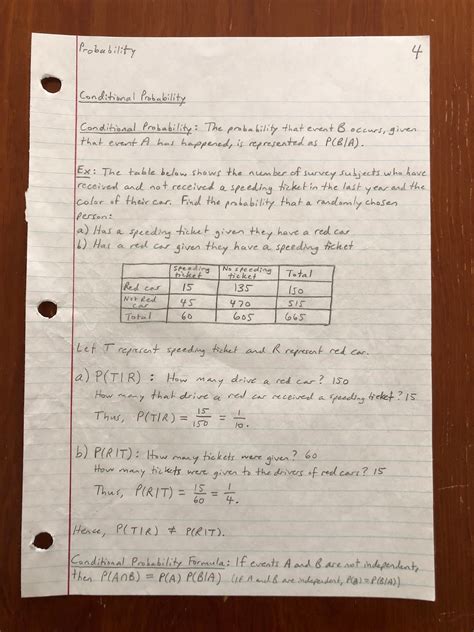 Probability
4
Conditional Probability
Conditional Probability: The probability that event B occurs, given
that event A has happened, is represented as P(B|A).
Ex: The table below shows the number of survey subjects who have
received and not received a speeding ticket in the last year and the
color of their car. Find the probability that a randomly chosen
person:
a) Has a speeding ticket given they have a red car
b) Has a red car given they have a speeding ticket
Speeding ticket No speeding ticket Total
Red car 15 135 150
Not Red car 45 470 515
Total 60 605 665
Let T represent speeding ticket and R represent red car.
a) P(T|R) : How many drive a red car? 150
How many that drive a red car received a speeding ticket? 15
Thus, P(T|R) = 15/150 = 1/10.
b) P(R|T): How many tickets were given? 60
How many tickets were given to the drivers of red cars? 15
Thus, P(R|T) = 15/60 = 1/4.
Hence, P(T|R) ≠ P(R|T).
Conditional Probability Formula: If events A and B are not independent,
then P(A∩B) = P(A) P(B|A) (If A and B are independent, P(B) = P(B|A))